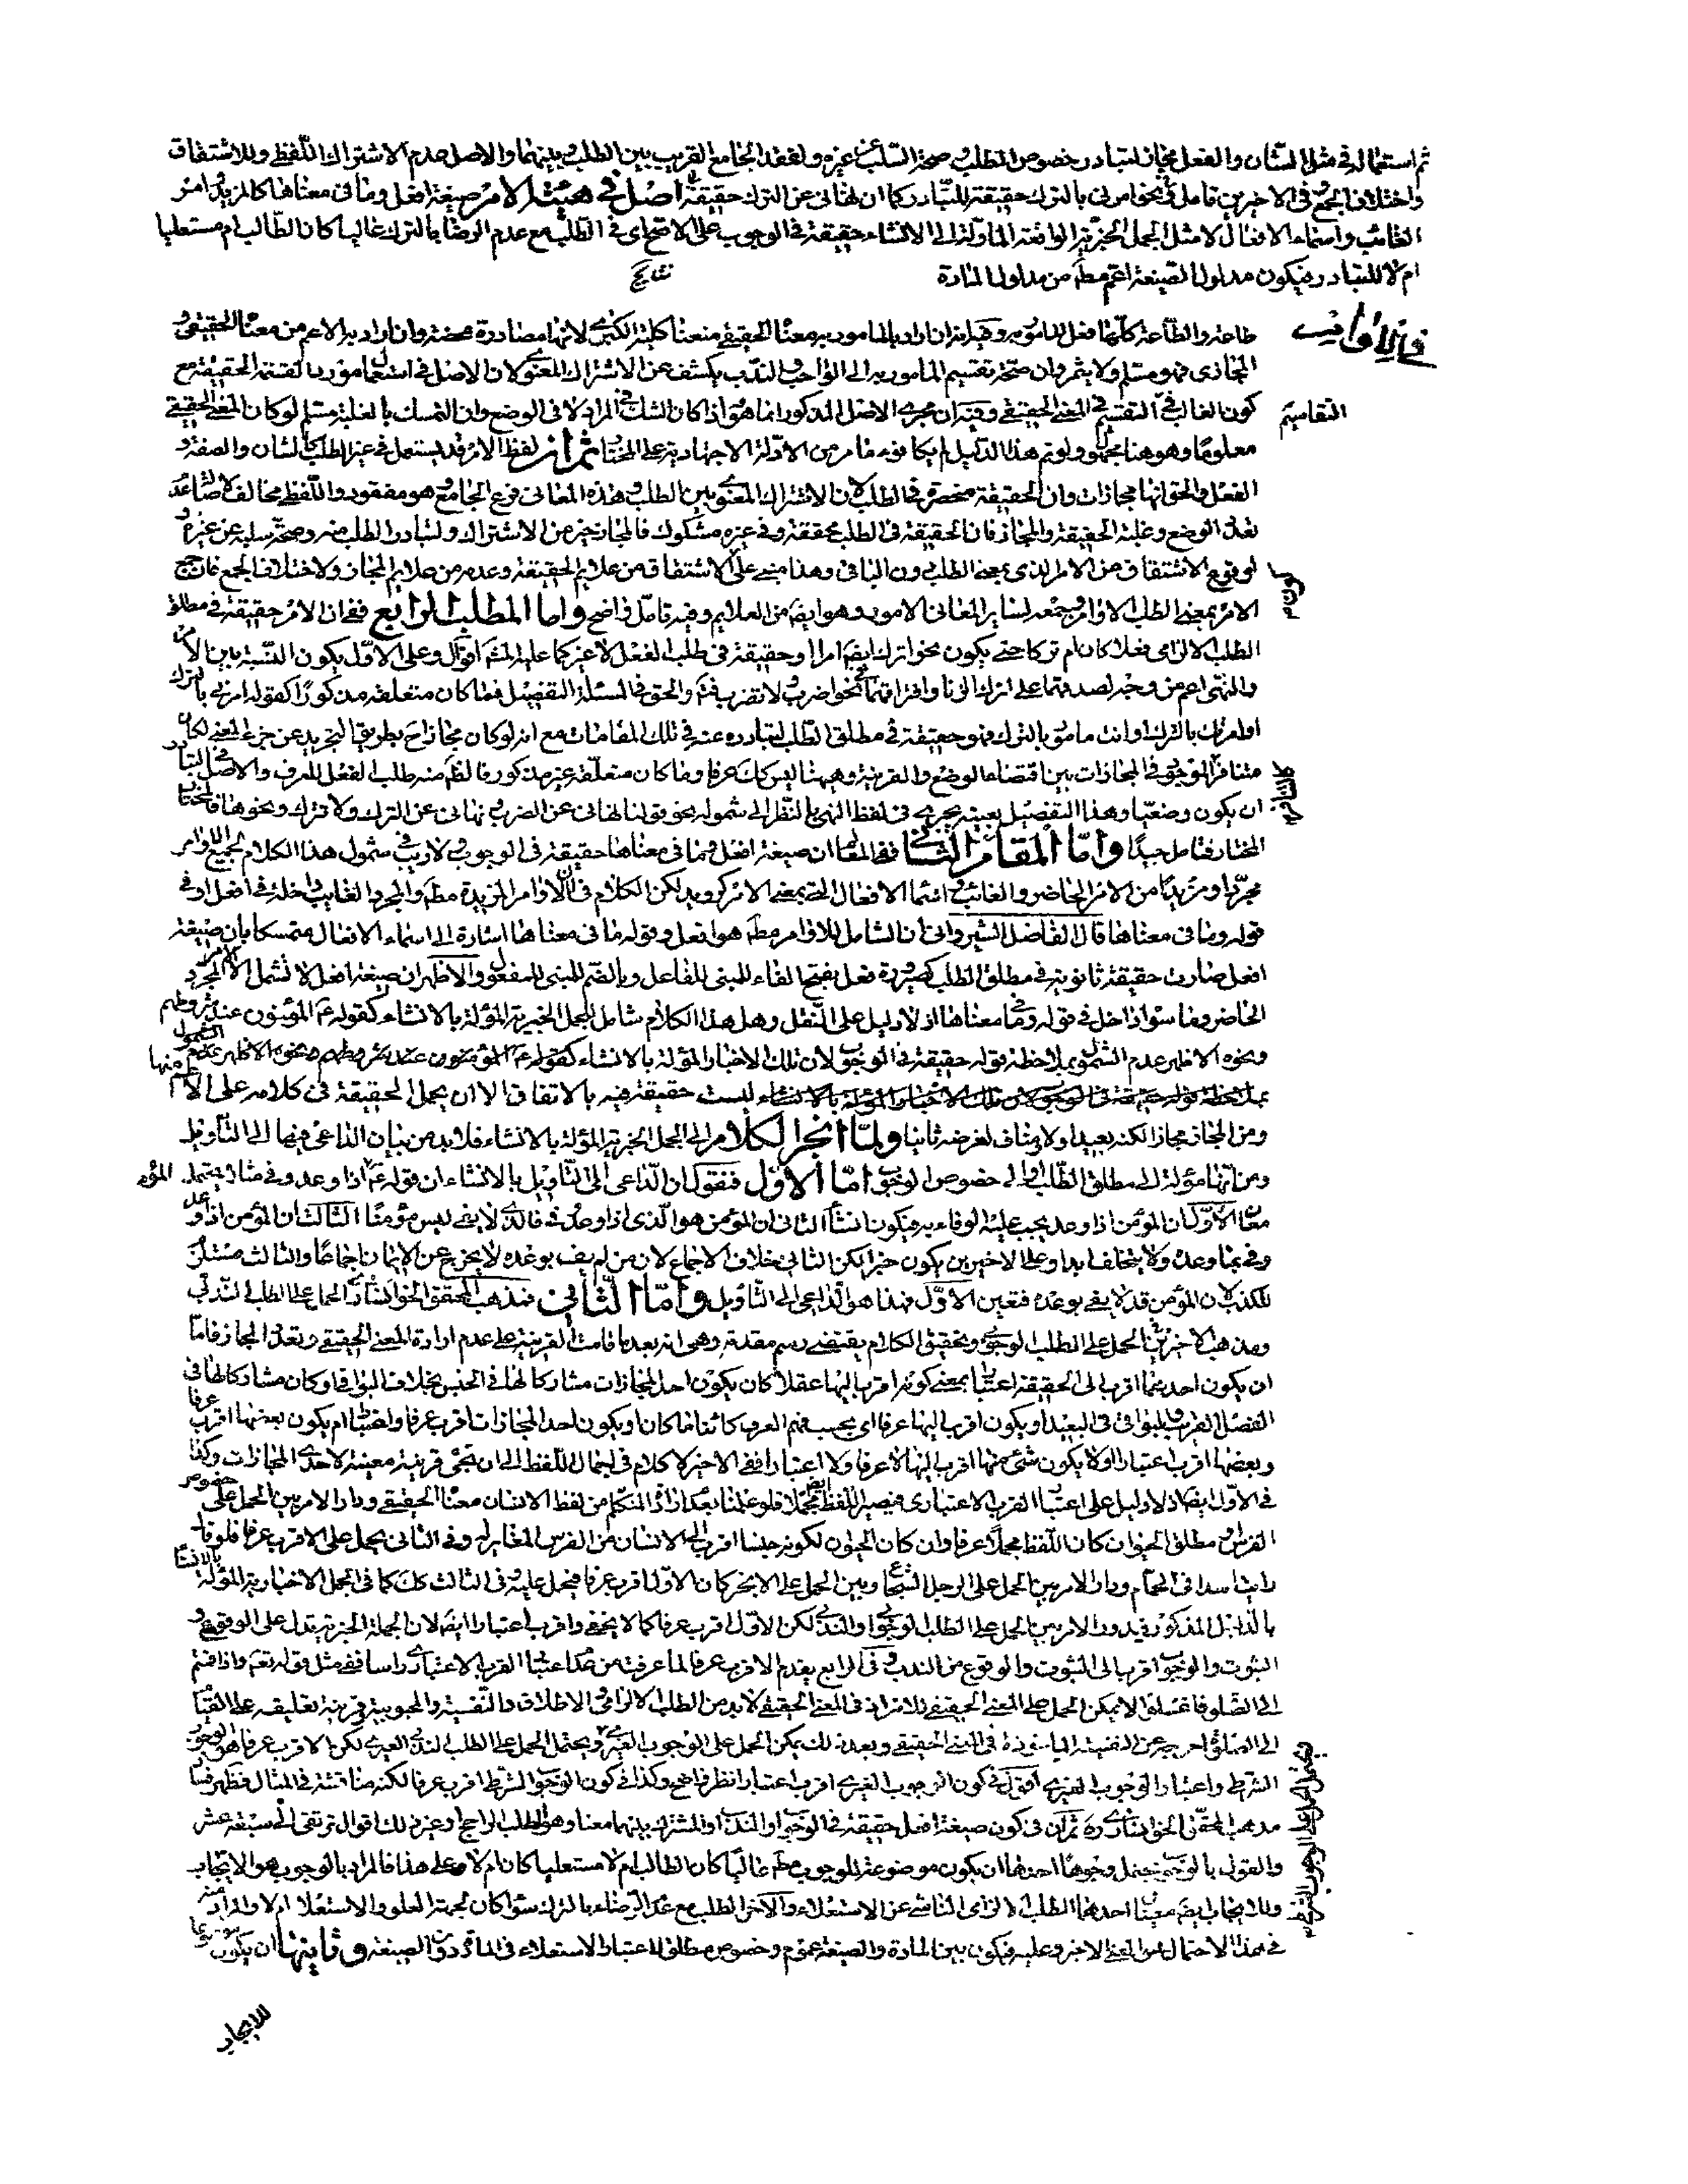 ثم استعماله فی مثل الشأن والفعل مجاز لتبادر خصوص الطلب وصحة السلب عن غیره ولفقد الجامع القریب بین الطلب وبینهما والاصل عدم الاشتراک اللفظی وللاشتقاق
واختلاف الجمع فی الاخیرین فامل فی نحو امرنی بالترک حقیقة للتبادر کما ان نهانی عن الترک حقیقة اصل فی هیئة الامر صیغة افعل وما فی معناها کالمزید وامر
الغائب واسماء الافعال لا مثل الجمل الخبریة الواقعة المأولة الی الانشاء حقیقة فی الوجوب علی الاصح ای فی الطلب مع عدم الرضا بالترک غالیا کان الطالب ام مستعلیا
ام لا للتبادر فیکون مدلول الصیغة اعم مط من مدلول المادة
نتایج
فی الاوامر
طاعة والطاعة کلها فعل المامور به وفیه انه ان اراد بالمامور به معناه الحقیقی منعنا کلیة الکبری لانها مصادرة محضة وان اراد به الاعم من معناه الحقیقی و
المجازی فهو مسلم ولا یثمر وان صحة تقسیم المامور به الی الواجب والندب یکشف عن الاشتراک المعنوی لان الاصل فی استعمال مورد القسمة الحقیقة مع
التقاسیم
کون الغالب فی التقسیم فی المعنی الحقیقی وفیه ان مجری الاصل المذکور انما هو اذا کان الشک فی المراد لا فی الوضع وان التمسک بالغلبة مسلم لو کان المعنی الحقیقی
معلوما وهو هنا مجهول ولو تم هذا الدلیل لم یکافؤ ما مر من الادلة الاجتهادیة علی المختار ثم ان لفظ الامر قد یستعمل فی غیر الطلب کالشان والصفة و
الفعل والحق انها مجازات وان الحقیقة منحصرة فی الطلب لان الاشتراک المعنوی بین الطلب وهذه المعانی فرع الجامع وهو مفقود واللفظی مخالف لاصالة عدم
تعدد الوضع وغلبة الحقیقة والمجاز فان الحقیقة فی الطلب محققة وفی غیره مشکوک فالمجاز خیر من الاشتراک ولتبادر الطلب منه وصحة سلبه عن غیره و
لوقوع الاشتقاق من الامر الذی بمعنی الطلب دون الباقی وهذا مبنی علی ان الاشتقاق من علایم الحقیقة وعدمه من علایم المجاز ولاختلاف الجمع فان جمع
الامر بمعنی الطلب الاوامر وجمعه لسایر المعانی الامور وهو ایض من العلایم وفیه تامل واضح واما المطلب الرابع ففی ان الامر حقیقة فی مطلق
الطلب الالزامی فعلا کان ام ترکا حتی یکون نحو اترک ایض امرا او حقیقة فی طلب الفعل لا غیر کما علیه اقوال وعلی الاول یکون النسبة بین الامر
والنهی اعم من وجه لصدقهما علی اترک الزنا وافتراقهما فی نحو اضرب ولا تضرب فتم والحق فی المسئلة التفصیل فما کان متعلقه مذکورا کقوله امرنی بالترک
او امرتک بالترک او انت مامور بالترک فهو حقیقة فی مطلق الطلب لتبادره عنه فی تلک المقامات مع انه لو کان مجازا ح بطریق التجرید عن جزء المعنی لکان
متنافر الموجود فی المجازات بین اقتضاء الوضع والقرینة وههنا لیس کک عرفا وما کان متعلقه غیر مذکور فالظ منه طلب الفعل للعرف والاصل فی التبادر
ان یکون وضعیا وهذا التفصیل بعینه یجری فی لفظ النهی بالنظر الی شموله نحو قولنا نهانی عن الضرب ونهانی عن الترک ولا تترک ونحوها فالمختار
المختار فتامل جیدا واما المقام الثانی ففی ان صیغة افعل وما فی معناها حقیقة فی الوجوب لا ریب فی شمول هذا الکلام لجمیع الاوامر
مجردا ومزیدا من الامر الحاضر والغائب واسماء الافعال التی بمعنی الامر کروید لکن الکلام فی ان الاوامر المزیدة مط والمجرد الغایب داخلة فی افعل او فی
قوله وما فی معناها قال الفاضل الشیروانی ان الشامل للاوامر مط هو افعل وقوله ما فی معناها اشارة الی اسماء الافعال متمسکا بان صیغة
افعل صارت حقیقة ثانویة فی مطلق الطلب کصیرورة فعل بفتح الفاء للمبنی للفاعل وبالضم للمبنی للمفعول والاظهر ان صیغة افعل لا تشمل الا الامر المجرد
الحاضر وما سواه داخل فی قوله وما فی معناها اذ لا دلیل علی النقل وهل هذا الکلام شامل للجمل الخبریة المؤلة بالانشاء کقوله ع المؤمنون عند شروطهم
ونحوه الاظهر عدم الشمول بملاحظة قوله حقیقة فی الوجوب لان تلک الاخبار المؤلة بالانشاء کقوله ع المؤمنون عند شروطهم ونحوه الاظهر عدم الشمول
بملاحظة قوله حقیقة فی الوجوب لان تلک الاخبار المؤلة بالانشاء لیست حقیقة فیه بالاتفاق الا ان یحمل الحقیقة فی کلامه علی الاعم منها
ومن المجاز مجازا لکنه بعید ولا مناف لغرضه ثانیا ولما انجر الکلام الی الجمل الخبریة المؤلة بالانشاء فلا بد من بیان الداعی فیها الی التاویل
ومن انها مؤلة الی مطلق الطلب او الی خصوص الوجوب اما الاول فنقول ان الداعی الی التاویل بالانشاء ان قوله ع المؤمن اذا وعد وفی مثلا یحتمل
معان الاول ان المؤمن اذا وعد یجب علیه الوفاء به فیکون انشاء الثانی ان المؤمن هو الذی اذا وعد وفی فالذی لا یفی لیس مؤمنا الثالث ان المؤمن اذا وعد
وفی بما وعده ولا یتخلف ابدا وعلی الاخیرین یکون خبرا لکن الثانی خلاف الاجماع لان من لم یف بوعده لا یخرج عن الایمان اجماعا والثالث مستلزم
للکذب لان المؤمن قد لا یفی بوعده فتعین الاول فهذا هو الداعی الی التاویل واما الثانی فمذهب المحقق الخوانساری الحمل علی الطلب الندبی
ومذهب الاخرین الحمل علی الطلب الوجوبی وتحقیق الکلام یقتضی رسم مقدمة وهی انه بعد ما قامت القرینة علی عدم ارادة المعنی الحقیقی وتعدد المجاز فاما
ان یکون احدهما اقرب الی الحقیقة اعتبارا بمعنی کونه اقرب الیها عقلا کان یکون احد المجازات مشارکا لها فی الجنس بخلاف البواقی او کان مشارکا لها فی
الفصل القریب والبواقی فی البعید او یکون اقرب الیها عرفا ای بحسب فهم العرف کائنا ما کان او یکون احد المجازات اقرب عرفا واعتبارا ام یکون بعضها اقرب عرفا
وبعضها اقرب اعتبارا او لا یکون شئ منها اقرب الیها لا عرفا ولا اعتبارا ففی الاخیر لا کلام فی اجمال اللفظ الی ان تجئ قرینة معینة لاحدی المجازات وکذا
فی الاول ایضا اذ لا دلیل علی اعتبار القرب الاعتباری فیصیر اللفظ مجملا فلو علمنا بعدم ارادة المتکلم من لفظ الانسان معناه الحقیقی ودار الامر بین الحمل علی خصوص
الفرس او مطلق الحیوان کان اللفظ مجملا عرفا وان کان الحیوان لکونه جنسا اقرب الی الانسان من الفرس المغایر له وفی الثانی یحمل علی الاقرب عرفا فلو قال
رایت اسدا فی الحمام ودار الامر بین الحمل علی الرجل الشجاع وبین الحمل علی الابخر کان الاول اقرب عرفا فیحمل علیه وفی الثالث کک کما فی الجمل الاخباریة المؤلة بالانشاء
بالدلیل المذکور فیدور الامر بین الحمل علی الطلب الوجوبی او الندبی لکن الاول اقرب عرفا کما لا یخفی واقرب اعتبارا ایض لان الجملة الخبریة تدل علی الوقوع و
الثبوت والوجوب اقرب الی الثبوت والوقوع من الندب وفی الرابع یقدم الاقرب عرفا لما عرفت من عدم اعتبار القرب الاعتباری راسا ففی مثل قوله تعم واذا قمتم
الی الصلوة فاغسلوا لا یمکن الحمل علی المعنی الحقیقی للامر اذ فی المعنی الحقیقی لا بد من الطلب الالزامی والاطلاق والنفسیة والمحبوبیة وقرینة تعلیقه علی القیام
الی الصلوة اخرجه عن النفسیة الماخوذة فی المعنی الحقیقی وبعد ذلک یمکن الحمل علی الوجوب الغیری ویحتمل الحمل علی الطلب الندبی الغیری لکن الاقرب عرفا هو الوجوب
الشرطی واعتبارا الوجوب الغیری اقول فی کون الوجوب الغیری اقرب اعتبارا نظر واضح وکذا فی کون الوجوب الشرطی اقرب عرفا لکنه مناقشة فی المثال فظهر فساد
مذهب المحقق الخوانساری ره ثم ان فی کون صیغة افعل حقیقة فی الوجوب او الندب او المشترک بینهما معنا وهو الطلب الراجح او غیر ذلک اقوال ترتقی الی سبعة عشر
والقول بالوجوب یحتمل وجوها احدها ان یکون موضوعة للوجوب مط عالیا کان الطالب ام لا مستعلیا کان ام لا وعلی هذا فالمراد بالوجوب هو الایجاب
وللایجاب ایض معنیان احدهما الطلب الالزامی الناشی عن الاستعلاء والآخر الطلب مع عدم الرضاء بالترک سواء کان لجهة العلو والاستعلاء ام لا والمراد منه
فی هذا الاحتمال هو المعنی الاخیر وعلیه فیکون بین المادة والصیغة عموم وخصوص مطلق لاعتبار الاستعلاء فی المادة دون الصیغة وثانیها ان یکون موضوعا
للایجاد